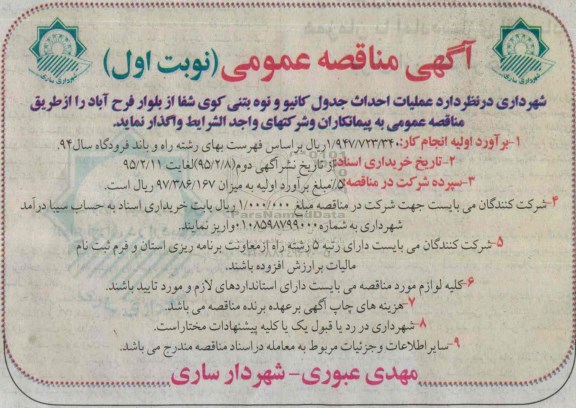 آگهی مناقصه عمومی (نوبت اول)
شهرداری ساری
شهرداری ساری
شهرداری درنظردارد عملیات احداث جدول کانیو و نوه بتنی کوی شفا از بلوار فرح آباد را ازطریق
مناقصه عمومی به پیمانکاران وشرکتهای واجد الشرایط واگذار نماید.
۱-برآورد اولیه انجام کار: ۱/۹۴۷/۷۲۳/۳۴۰ریال براساس فهرست بهای رشته راه و باند فرودگاه سال۹۴.
۲-تاریخ خریداری اسناد: از تاریخ نشرآگهی دوم(۹۵/۲/۸)لغایت ۹۵/۲/۱۱
۳-سپرده شرکت در مناقصه: ۵٪مبلغ برآورد اولیه به میزان ۹۷/۳۸۶/۱۶۷ ریال است.
۴-شرکت کنندگان می بایست جهت شرکت در مناقصه مبلغ ۱/۰۰۰/۰۰۰ ریال بابت خریداری اسناد به حساب سیبا درآمد
شهرداری به شماره ۰۱۰۸۵۹۸۷۹۹۰۰۰واریز نمایند.
۵-شرکت کنندگان می بایست دارای رتبه ۵ رشته راه ازمعاونت برنامه ریزی استان و فرم ثبت نام
مالیات برارزش افزوده باشند.
۶-کلیه لوازم مورد مناقصه می بایست دارای استانداردهای لازم و مورد تایید باشند.
۷-هزینه های چاپ آگهی برعهده برنده مناقصه می باشد.
۸-شهرداری در رد یا قبول یک یا کلیه پیشنهادات مختاراست.
۹-سایراطلاعات وجزئیات مربوط به معامله دراسناد مناقصه مندرج می باشد.
مهدی عبوری- شهردار ساری